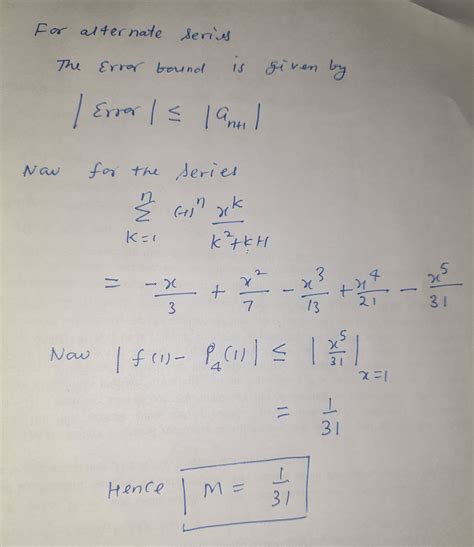 For alternate series
The Error bound is given by
| Error | ≤ | a_{n+1} |
Now for the series
\sum_{k=1}^{n} (-1)^n \frac{x^k}{k^2+k+1}
= \frac{-x}{3} + \frac{x^2}{7} - \frac{x^3}{13} + \frac{x^4}{21} - \frac{x^5}{31}
Now | f(1) - P_4(1) | ≤ | \frac{x^5}{31} |_{x=1}
= \frac{1}{31}
Hence M = \frac{1}{31}